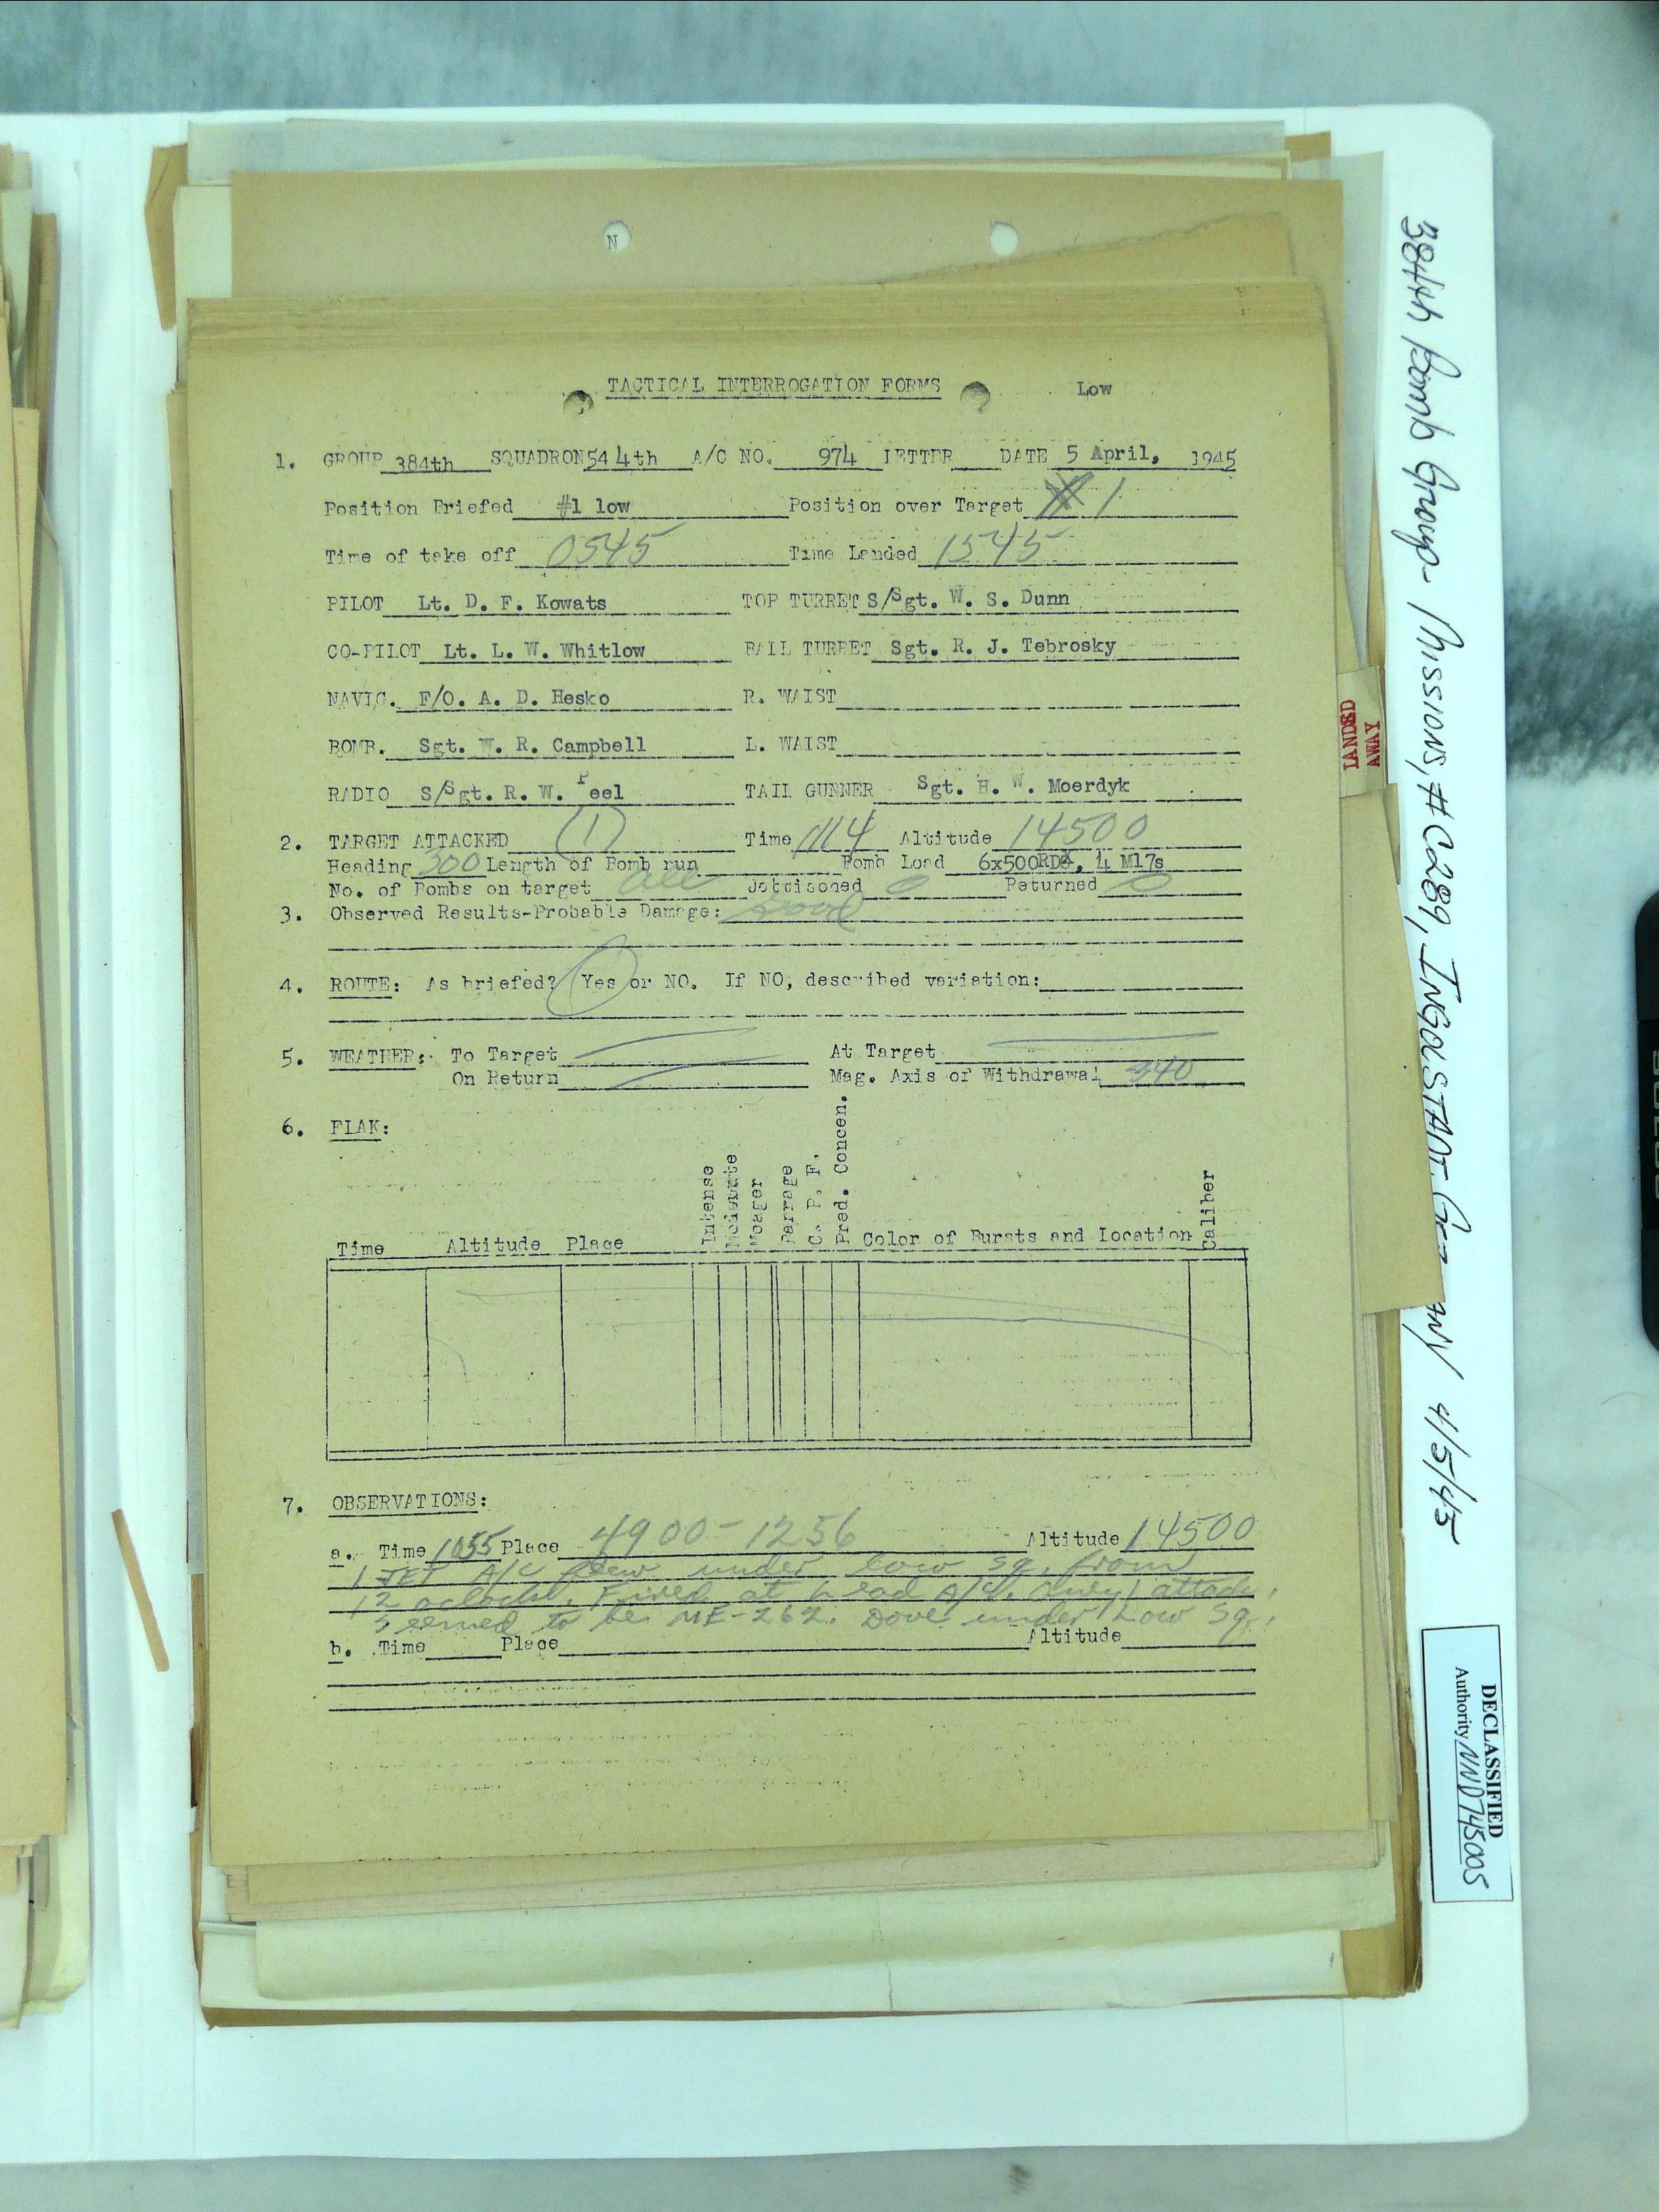 N
TACTICAL INTERROGATION FORMS Low
1. GROUP 384th SQUADRON 544th A/C NO. 974 LETTER DATE 5 April, 1945
Position Briefed #1 low Position over Target 1
Time of take off 0545 Time Landed 1545
PILOT Lt. D. F. Kowats TOP TURRET S/Sgt. W. S. Dunn
CO-PILOT Lt. L. W. Whitlow BALL TURRET Sgt. R. J. Tebrosky
NAVIG. F/O. A. D. Hesko R. WAIST
BOMB. Sgt. W. R. Campbell L. WAIST
RADIO S/Sgt. R. W. Peel TAIL GUNNER Sgt. H. W. Moerdyk
2. TARGET ATTACKED (1) Time 1114 Altitude 14500
Heading 300 Length of Bomb run Bomb Load 6x500RDX, 4 M17s
No. of Bombs on target all Jettisoned 0 Returned 0
3. Observed Results-Probable Damage: Good
4. ROUTE: As briefed? Yes or NO. If NO, described variation:
5. WEATHER: To Target At Target
On Return Mag. Axis of Withdrawal 340
6. FLAK:
Time Altitude Place Intense Moderate Meager Barrage C. P. F. Pred. Concen. Color of Bursts and Location Caliber
7. OBSERVATIONS:
a. Time 1055 Place 4900-1256 Altitude 14500
1 JET A/C flew under low sq. from
12 oclock. Fired at lead A/C. Only 1 attack.
Seemed to be ME-262. Dove under Low Sq.
b. Time Place Altitude
LANDED
AWAY
384th Bomb Group- Missions, # C289, INGOLSTADT, 4/5/45
DECLASSIFIED
Authority NND745005